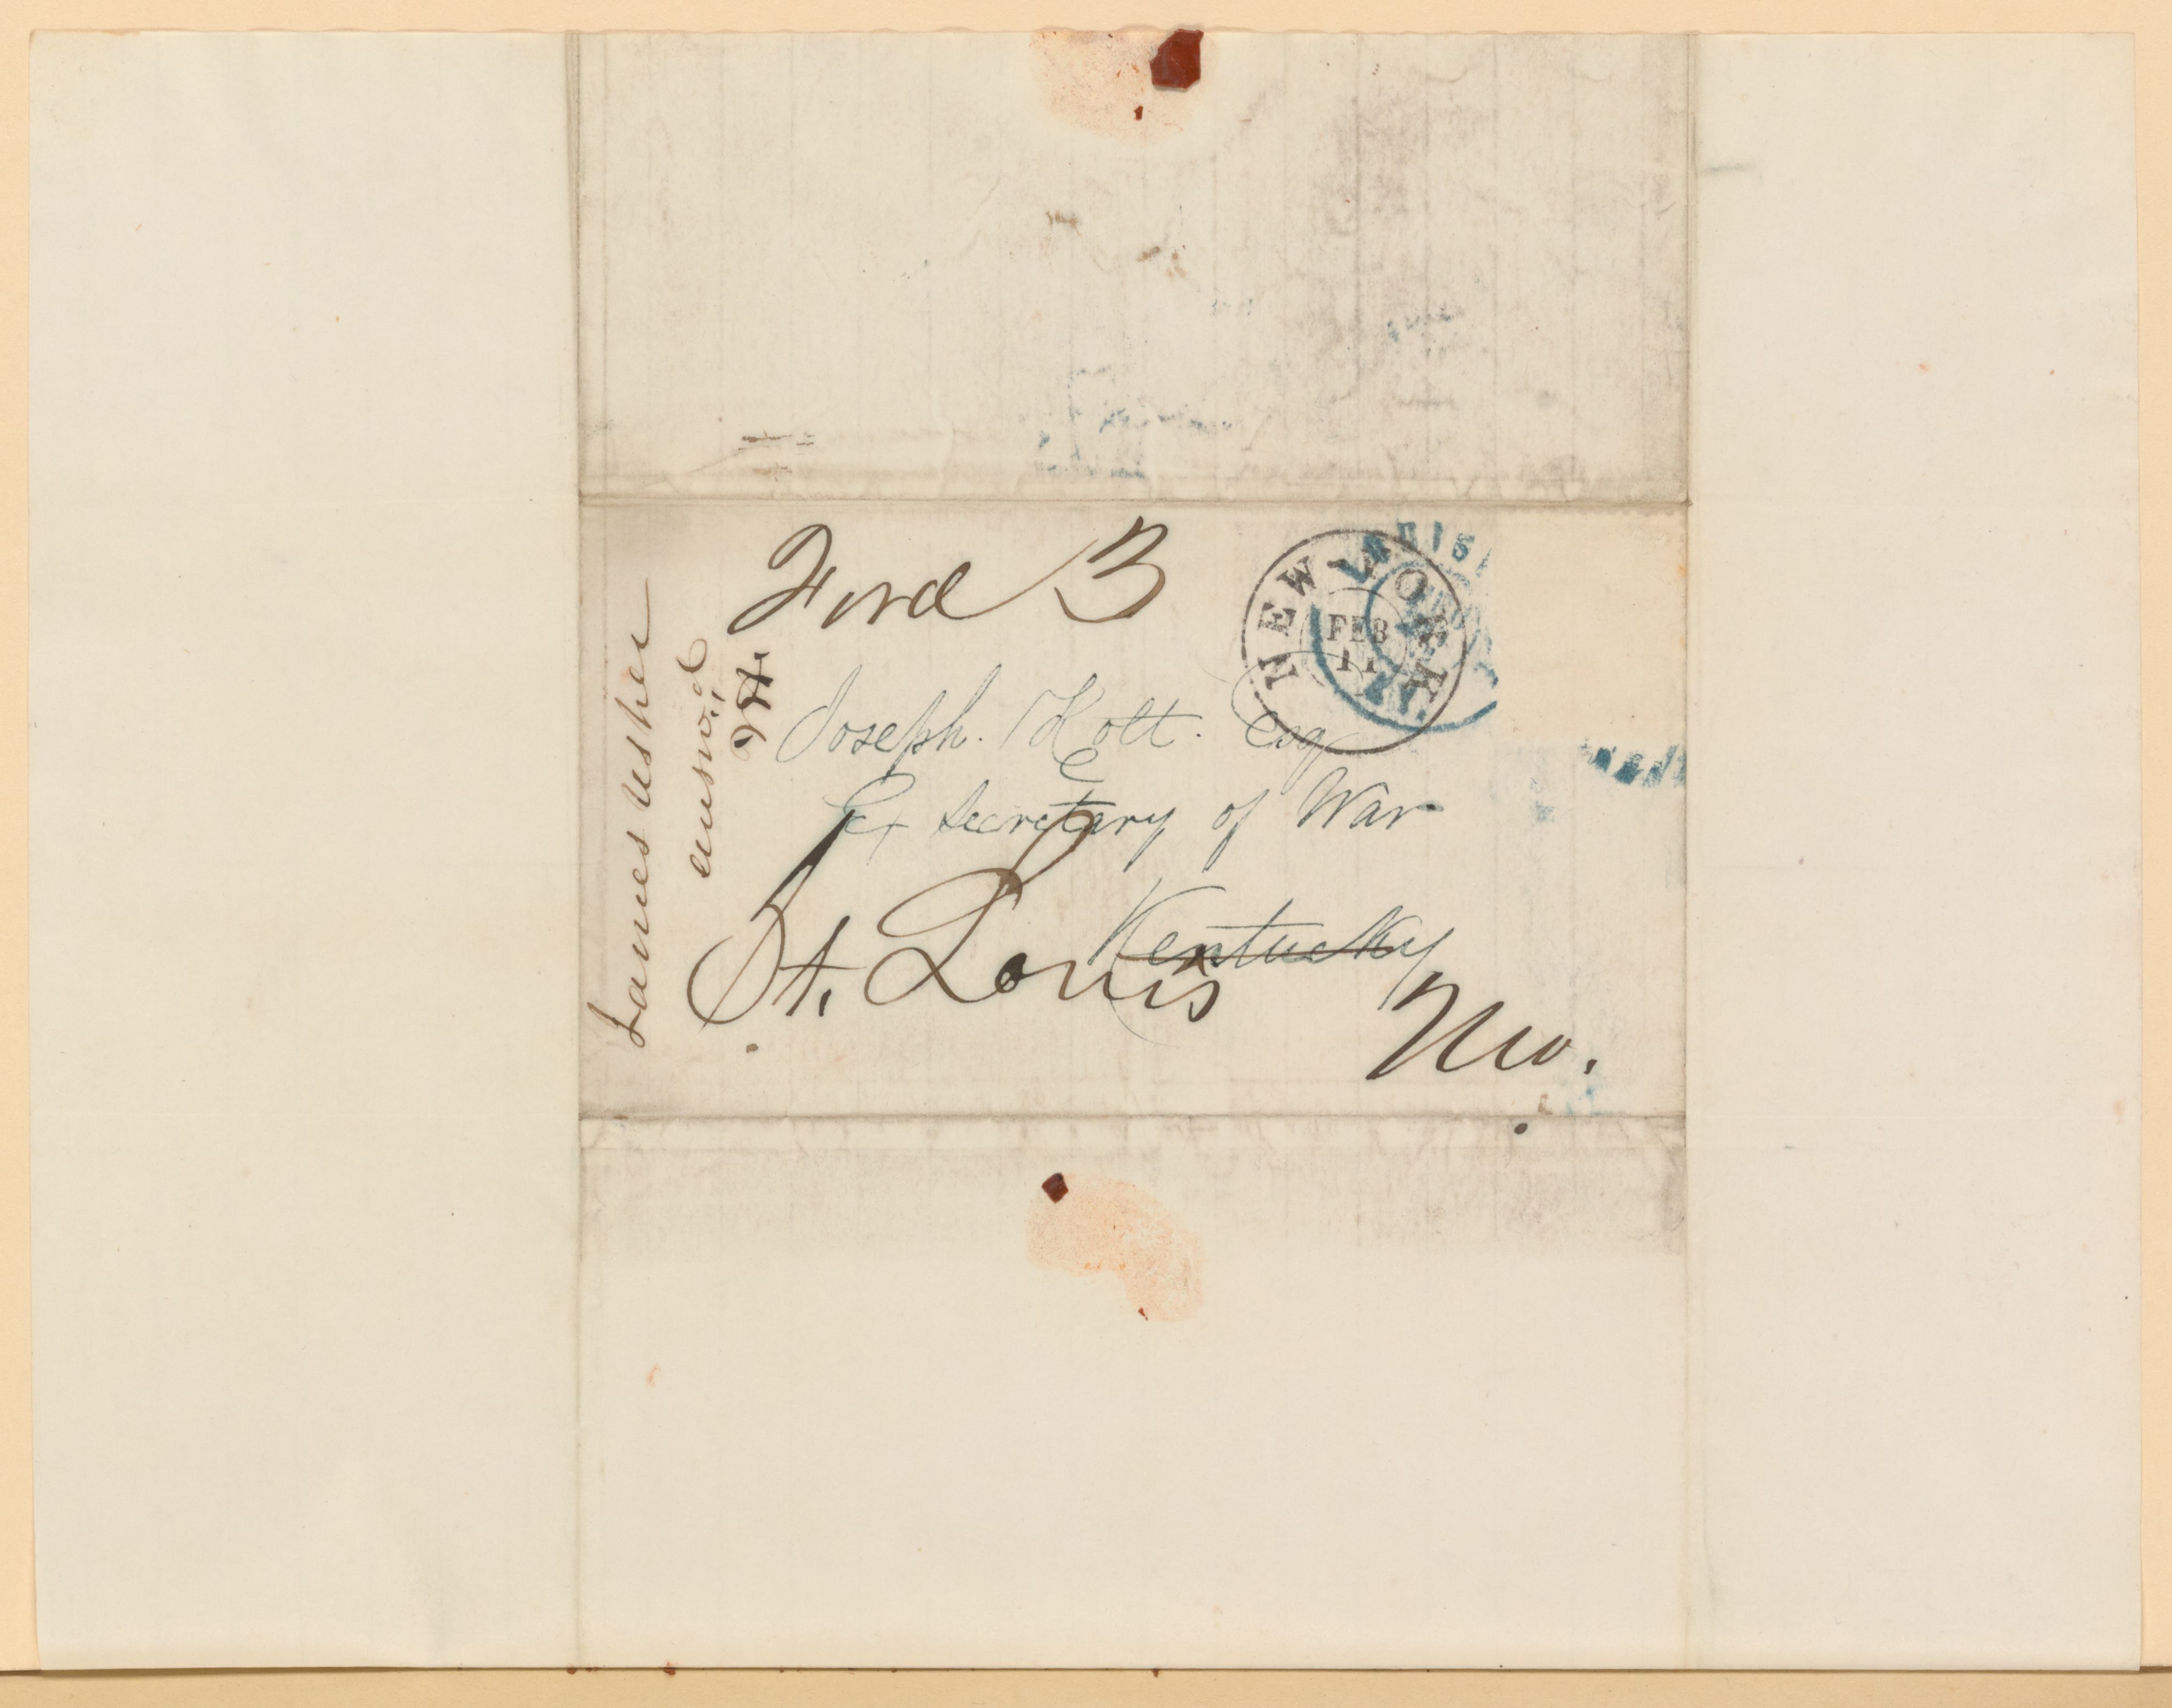 Ford 3
NEW YORK
FEB
11
Joseph. Holt. Esq
Ex Secretary of War
Kentucky
St. Louis
Mo.
James Usher
answd